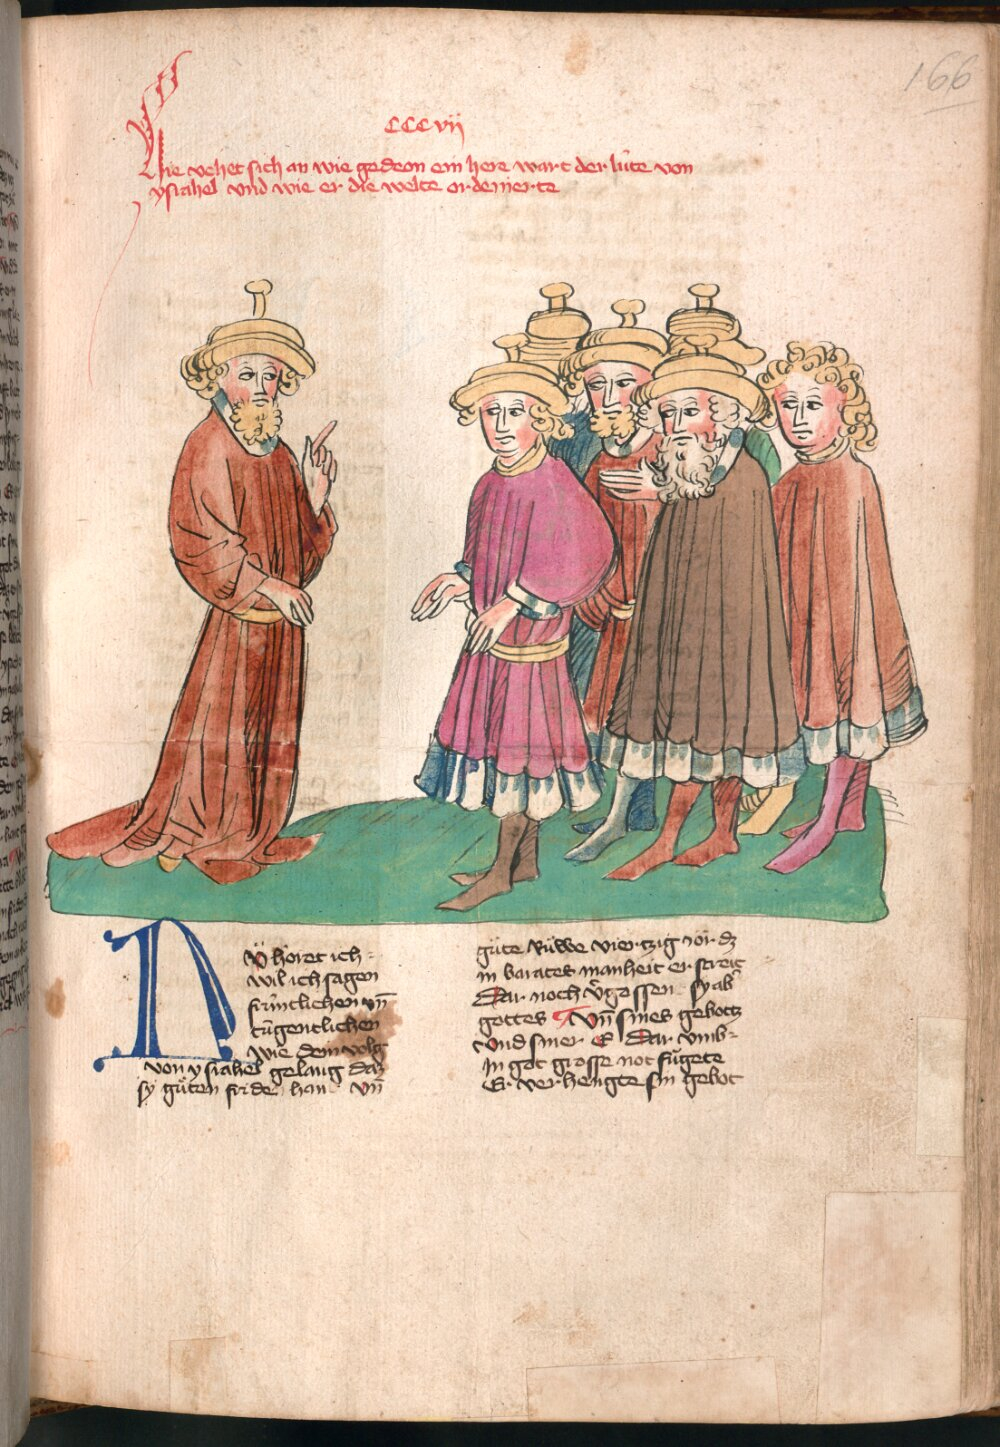 166
CCCvij
Hie vehet sich an wie gedeon ein here wart der lúte von
ysrahel vnd wie er die welte
NV hoͤret ich
wil ich sagen
frúntlichen vn̄
tugentlichen
Wie dem volg
von ysrahel gelang daz
sy guͤten friden hant vn̄
guͤte Ruͤwe viertzig Jor dz
in barates manheit erstreit
Dar noch v͛gossen sy ab͛
gottes Vn̄ sines gebottz
vnd siner E Dar vmb
In got grosse not fuͤgete
Er verhengte sin gebot